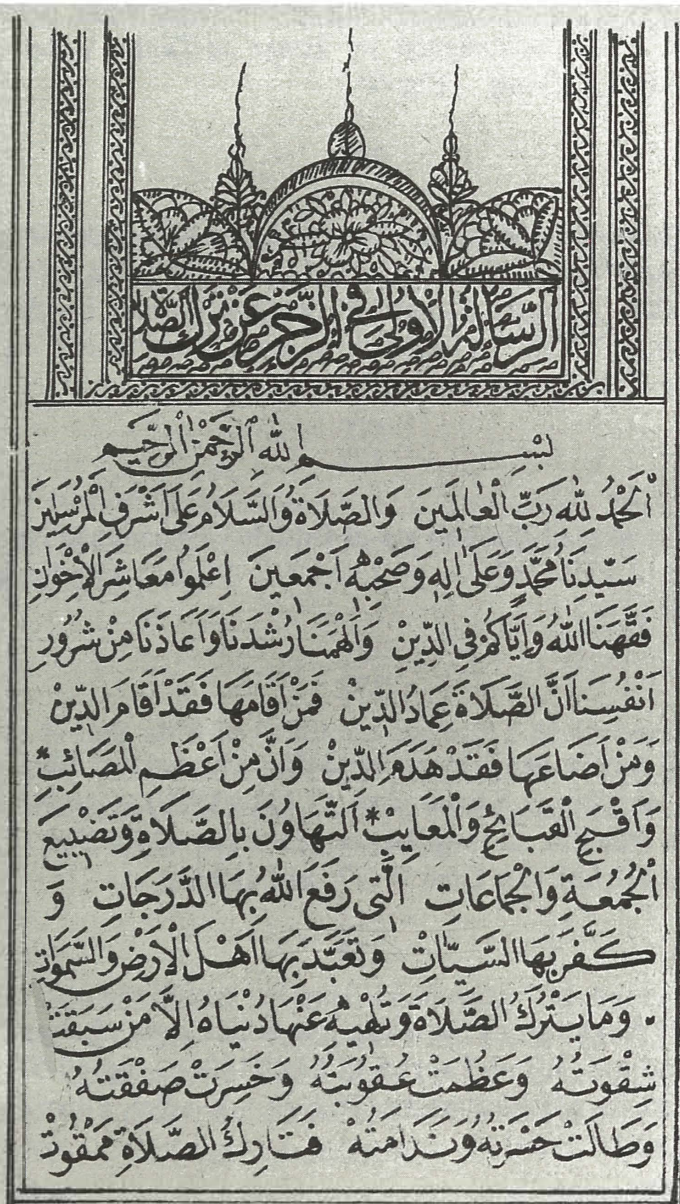 الرِّسَالَةُ الْأُولَى فِي الزَّجْرِ عَنْ تَرْكِ الصَّلَاةِ
بِسْمِ اللهِ الرَّحْمٰنِ الرَّحِيمِ
اَلْحَمْدُ لِلّٰهِ رَبِّ الْعَالَمِينَ وَالصَّلَاةُ وَالسَّلَامُ عَلَى اَشْرَفِ الْمُرْسَلِينَ
سَيِّدِنَا مُحَمَّدٍ وَعَلَى اٰلِهِ وَصَحْبِهِ اَجْمَعِينَ اِعْلَمُوا مَعَاشِرَ الْاِخْوَانِ
فَقَّهَنَا اللهُ وَاِيَّاكُمْ فِي الدِّينِ وَاَلْهَمَنَا رُشْدَنَا وَاَعَاذَنَا مِنْ شُرُورِ
اَنْفُسِنَا اَنَّ الصَّلَاةَ عِمَادُ الدِّينِ فَمَنْ اَقَامَهَا فَقَدْ اَقَامَ الدِّينْ
وَمَنْ اَضَاعَهَا فَقَدْ هَدَمَ الدِّينْ وَاِنَّ مِنْ اَعْظَمِ الْمَصَائِبِ *
وَاَقْبَحِ الْقَبَائِحِ وَالْمَعَايِبْ * اَلتَّهَاوُنَ بِالصَّلَاةِ وَتَضْيِيعَ
الْجُمُعَةِ وَالْجَمَاعَاتِ الَّتِى رَفَعَ اللهُ بِهَا الدَّرَجَاتِ وَ
كَفَّرَ بِهَا السَّيِّاٰتِ وَتَعَبَّدَ بِهَا اَهْلَ الْاَرْضِ وَالسَّمٰوَاتِ
. وَمَا يَتْرُكُ الصَّلَاةَ وَتُلْهِيهِ عَنْهَا دُنْيَاهُ اِلَّا مَنْ سَبَقَتْ
شِقْوَتُهُ وَعَظُمَتْ عُقُوبَتُهُ وَخَسِرَتْ صَفْقَتُهُ
وَطَالَتْ حَسْرَتُهُ وَنَدَامَتُهُ فَتَارِكُ الصَّلَاةِ مَمْقُوتْ